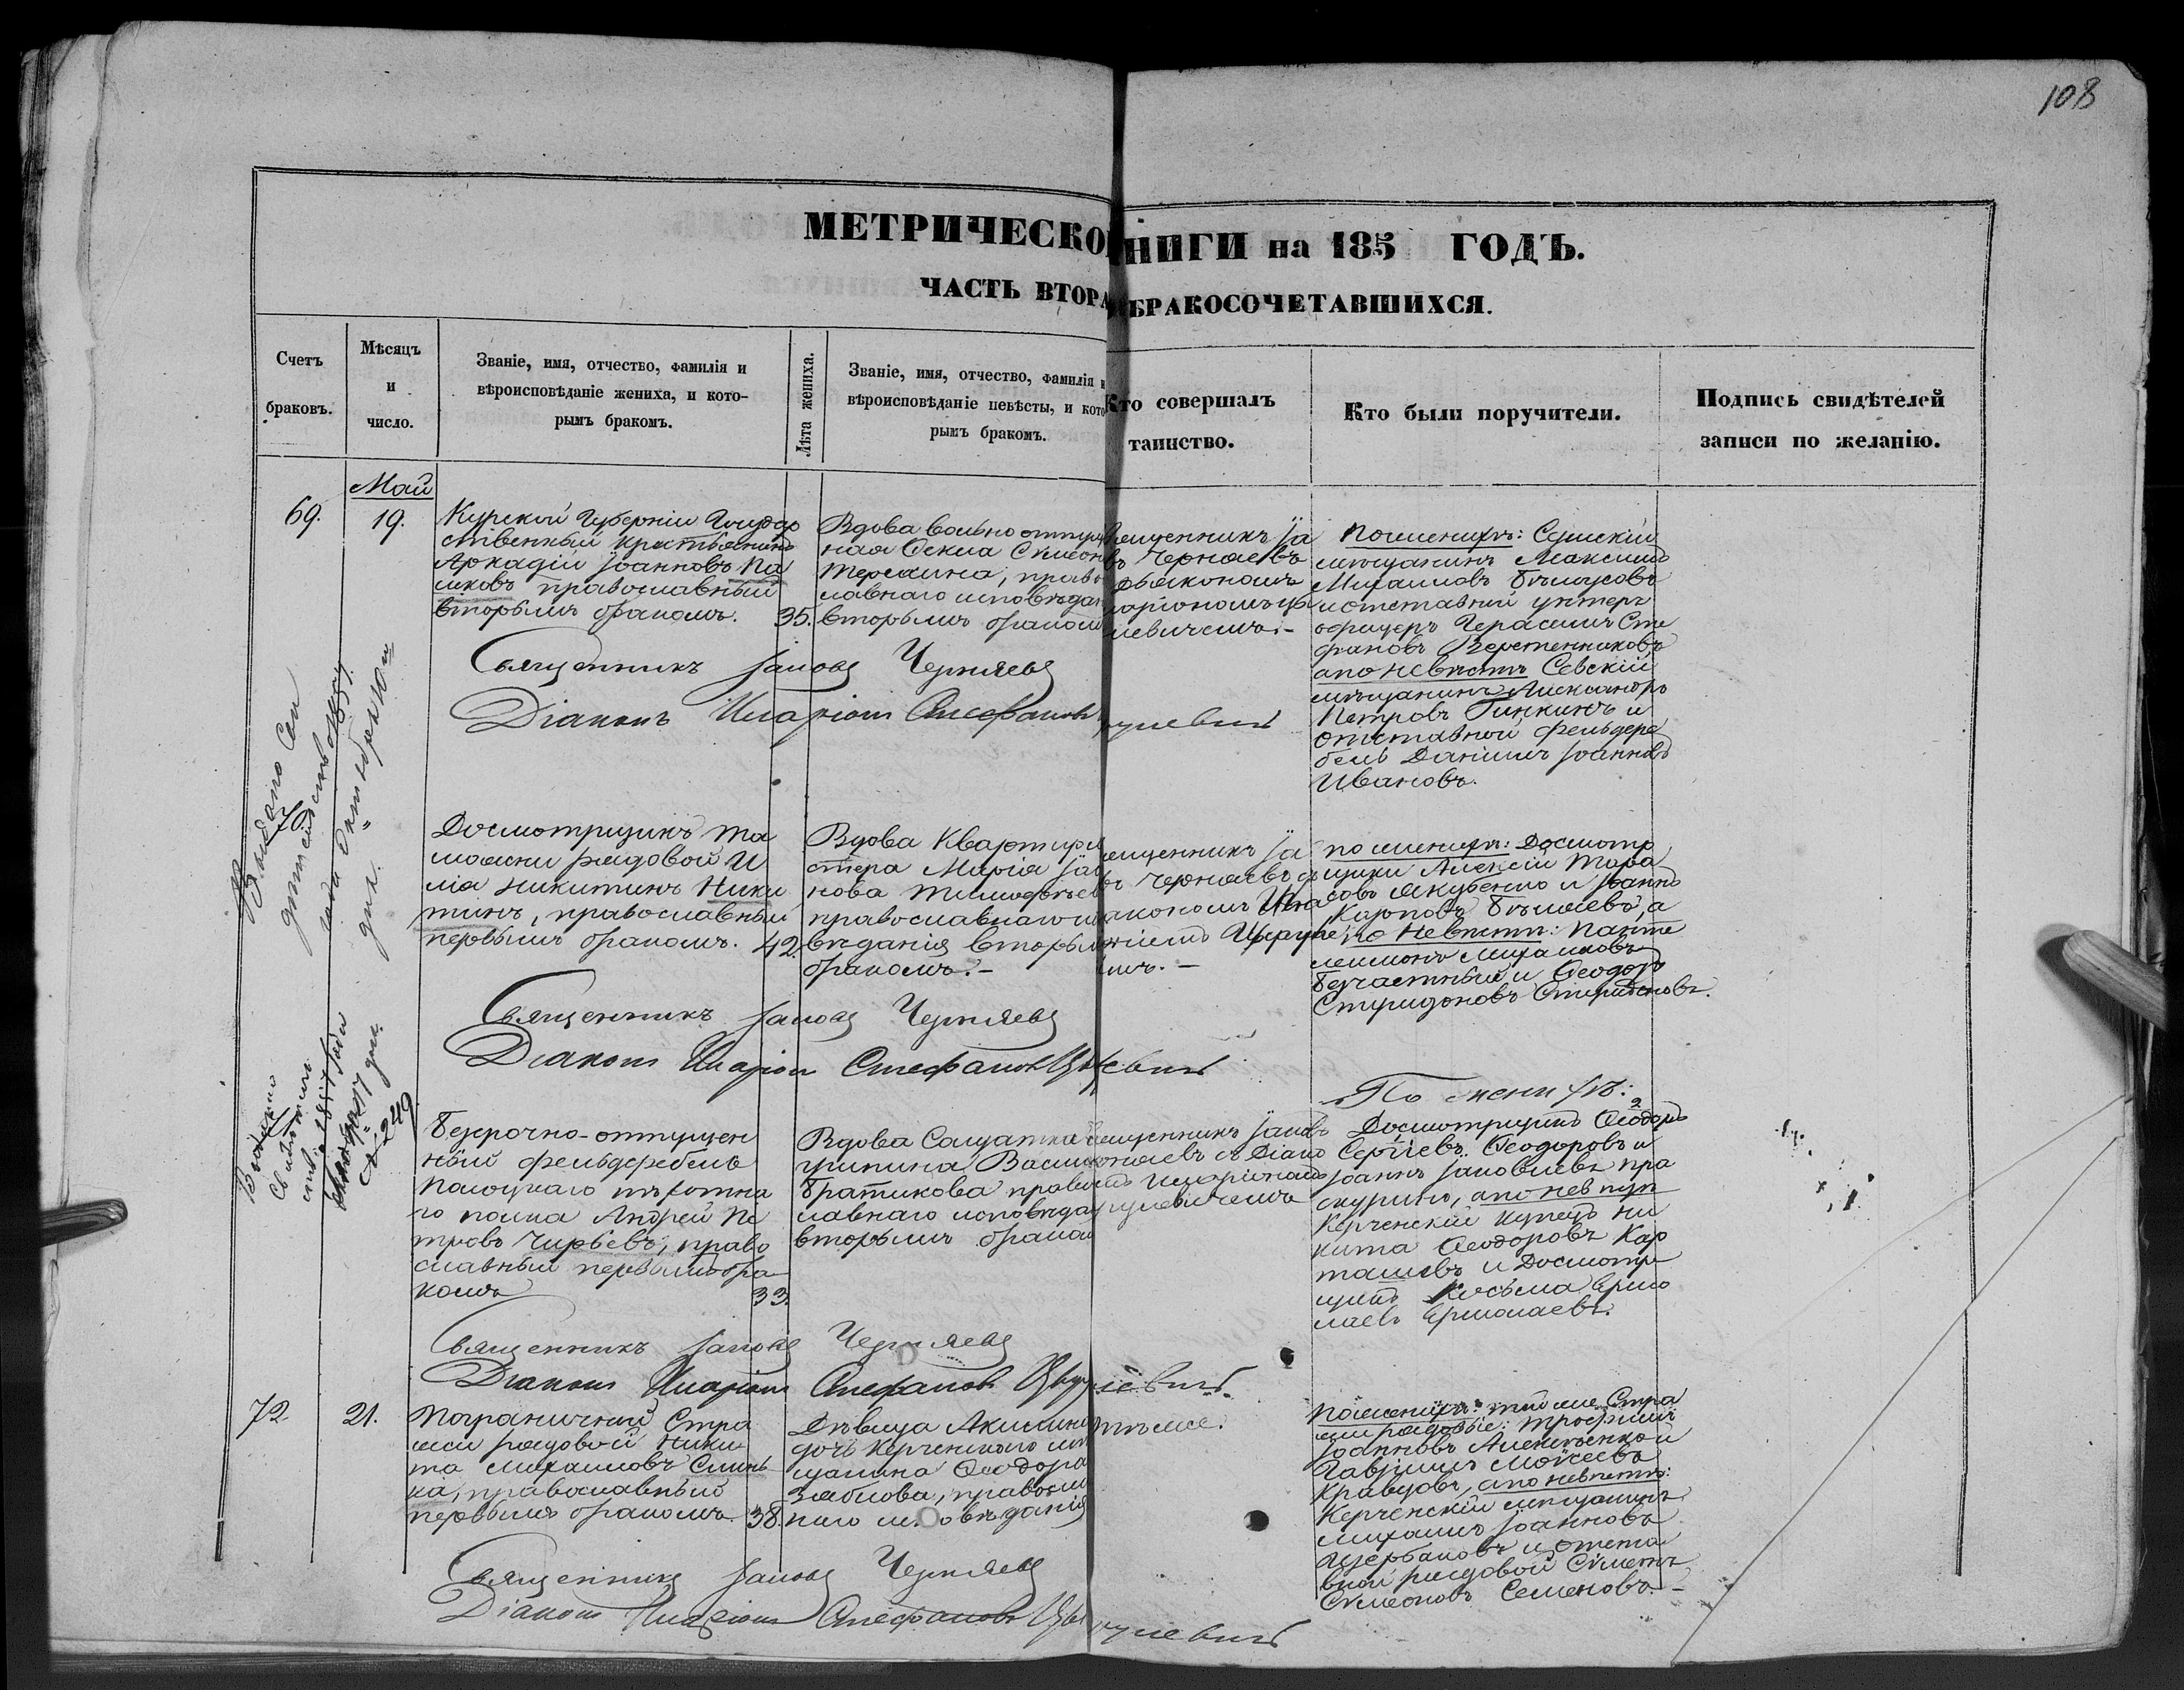 108
МЕТРИЧЕСКО НИГИ на 185 ГОДЪ.
ЧАСТЬ ВТОРА БРАКОСОЧЕТАВШИХСЯ.
Счетъ браковъ.
Мѣсяцъ и число.
Званіе, имя, отчество, фамилія и
вѣроисповѣданіе жениха, и кото-
рымъ бракомъ.
Лѣта жениха.
Званіе, имя, отчество, фамилія и
вѣроисповѣданіе невѣсты, и кото
рымъ бракомъ.
Кто совершалъ
таинство.
Кто были поручители.
Подпись свидѣтелей
записи по желанію.
Май
69.
19.
Курской Губерніи Государ
ственный крестьянинъ
Аркадій Іоанновъ Па
шковъ православный
вторымъ бракомъ.
35.
Вдова вольноотпущ
ная Ѳекла Симеон
Терехина, право
славнаго исповѣдан
вторымъ бракомъ
щенникъ Іа
въ Черняевъ
дьякономъ
ларіономъ Цы
левичемъ.-
По женихѣ:
мѣщанинъ Максимъ
Михаиловъ Бѣлоусовъ
и отставный унтеръ
офицеръ Герасимъ Сте
фановъ Веретенниковъ,
а по невѣстѣ Севскій
мѣщанинъ Александръ
Петровъ Гинкинъ и
отставной фельдфе
бель Даніилъ Іоанновъ
Ивановъ.
Священникъ Іаковъ Черняевъ
Діаконъ Иларіонъ Стефановъ
Досмотрщикъ та
можни рядовой И
лія Никитинъ Ники
тинъ, православный
первымъ бракомъ.
42.
Вдова Квартирм
стера Марія Іа
нова Тимофеев
православнаго и
вѣданія вторым
бракомъ.-
щенникъ Іа
въ Черняевъ съ
акономъ Ила
по женихѣ: Досмотр
щики Алексѣй Тара
совъ Якубенко и Іоаннъ
Карповъ Бѣляевъ, а
по невѣстѣ: Панте
леимонъ Михаиловъ
Безчастный и Ѳеодоръ
Спиридоновъ Спиридоновъ.
Священникъ Іаковъ Черняевъ
Діаконъ Иларіонъ Стефановъ
Безсрочно-отпущен
ный фельдфебель
Полоцкаго пѣхотна
го полка Андрей Пе
тровъ Чирьевъ, право
славный первымъ бра
комъ
33.
Вдова Солдатка
грипина Васил
Братикова право
славнаго исповѣда
вторымъ браком
щенникъ Іаковъ
няевъ съ Діако
По жених҃ѣ:
Досмотрщикъ Ѳеодоръ
Сергіевъ Ѳеодоровъ и
Іоаннъ Іаковлевъ Про
скуринъ, а по невѣстѣ
Керченскій купецъ Ни
кита Ѳеодоровъ Кар
ташевъ и Досмотр
щикъ Косьма Ермо
лаевъ Ермолаевъ.
Священникъ Іаковъ Черняевъ
Діаконъ Иларіонъ Стефановъ
72
21.
Пограничной Стра
жи рядовой Ники
та Михаиловъ
ка, православный
первымъ бракомъ.
38.
Дѣвица Акилина
дочь Керченскаго мѣ
щанина Ѳеодора
Зяблова, правосл
наго исповѣданія
Тѣже.
По женихѣ: той же Стра
жи рядовые: Трофимъ
Іоанновъ Алексѣенко и
Гавріилъ Моисеевъ
Кравцовъ, а по невѣстѣ:
Керченскій мѣщанинъ
Михаилъ Іоанновъ
Щербаковъ и отста
вной рядовой Симеонъ
Симеоновъ Семеновъ.-
Священникъ Іаковъ Черняевъ
Діаконъ Иларіонъ Стефановъ